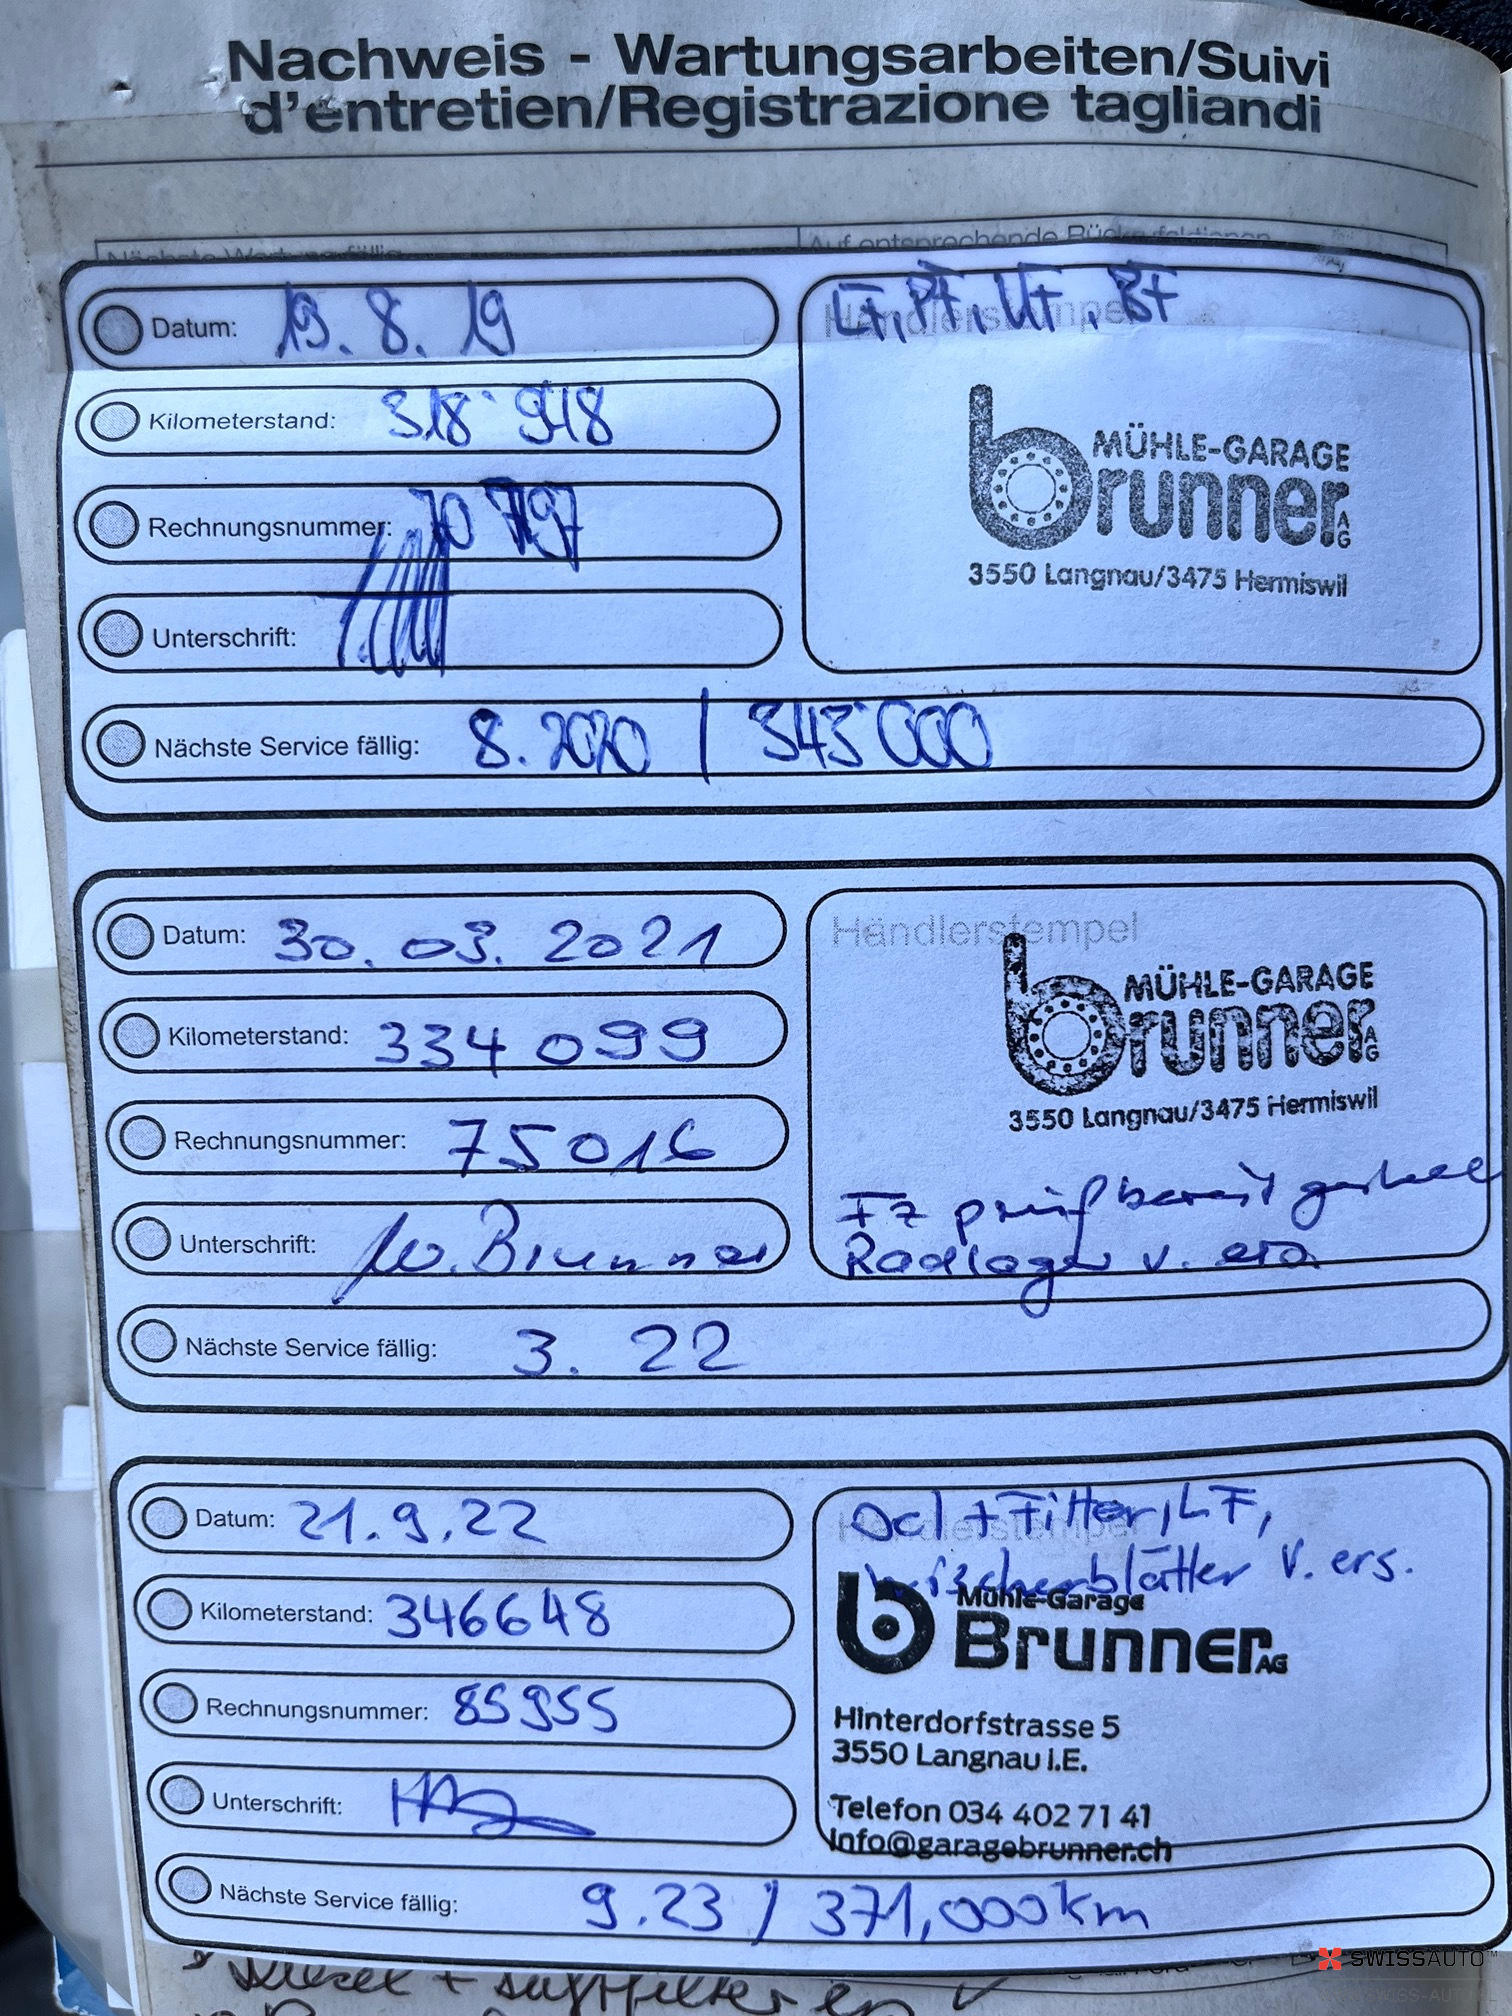 Nachweis - Wartungsarbeiten/Suivi
d'entretien/Registrazione tagliandi
Nächste Wartung fällig
Auf entsprechende
Datum: 19. 8. 19
LF, PF, UF, BF
Händlerstempel
Kilometerstand: 318'948
MÜHLE-GARAGE
brunner AG
3550 Langnau/3475 Hermiswil
Rechnungsnummer: 70 797
Unterschrift:
Nächste Service fällig: 8. 2020 / 343'000
Datum: 30. 03. 2021
Händlerstempel
Kilometerstand: 334 099
MÜHLE-GARAGE
brunner AG
3550 Langnau/3475 Hermiswil
Rechnungsnummer: 75016
FZ prüfbereit gestellt
Radlager v. ers.
Unterschrift: W. Brunner
Nächste Service fällig: 3. 22
Datum: 21. 9. 22
Oel + Filter, LF,
Händlerstempel
Wischerblätter v. ers.
Kilometerstand: 346648
Mühle-Garage
Brunner AG
Rechnungsnummer: 85955
Hinterdorfstrasse 5
3550 Langnau i.E.
Unterschrift:
Telefon 034 402 71 41
info@garagebrunner.ch
Nächste Service fällig: 9.23 / 371,000km
SWISSAUTO™